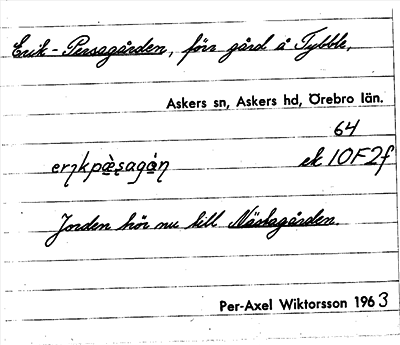 Erik-Persagården, förr gård å Tybble,
Askers sn, Askers hd, Örebro län.
64
ek 10F2f
Jorden hör nu till Nästagården.
Per-Axel Wiktorsson 1963